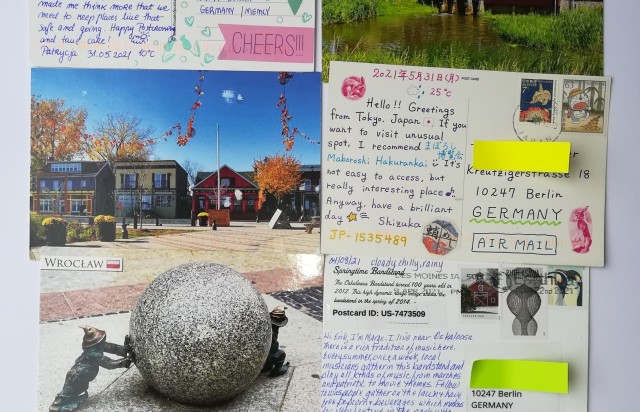 made me think more that we
need to keep places like that
safe and going. Happy Postcrossing
and take care!
Patrycja 31.05.2021 10°C
GERMANY | NIEMCY
CHEERS!!!
2021年5月31日(月)
POST CARD
25°C
Hello!! Greetings
from Tokyo. Japan. If you
want to visit unusual
spot, I recommend まぼろし
博覧会
Maboroshi Hakurankai It's
not easy to access, but
really interesting place
Anyway, have a brilliant
day Shizuka
JP-1535489
Kreutzigerstrasse 18
10247 Berlin
GERMANY
AIR MAIL
WROCŁAW
04/08/21 cloudy, chilly, rainy
Springtime Bandstand
The Oskaloosa Bandstand turned 100 years old in
2012. This high dynamic range image shows the
bandstand in the spring of 2014.
Postcard ID: US-7473509
DES MOINES IA 50
APR 2021 PM
Hi Erik, I'm Marge. I live near Oskaloosa
there is a rich tradition of music here.
Every summer, once a week, local
musicians gather in this bandstand and
play all kinds of music from marches
and patriotic to movie themes. Fellow
townspeople gather on the lawn & have
free popcorn & beverages which makes
10247 Berlin
GERMANY